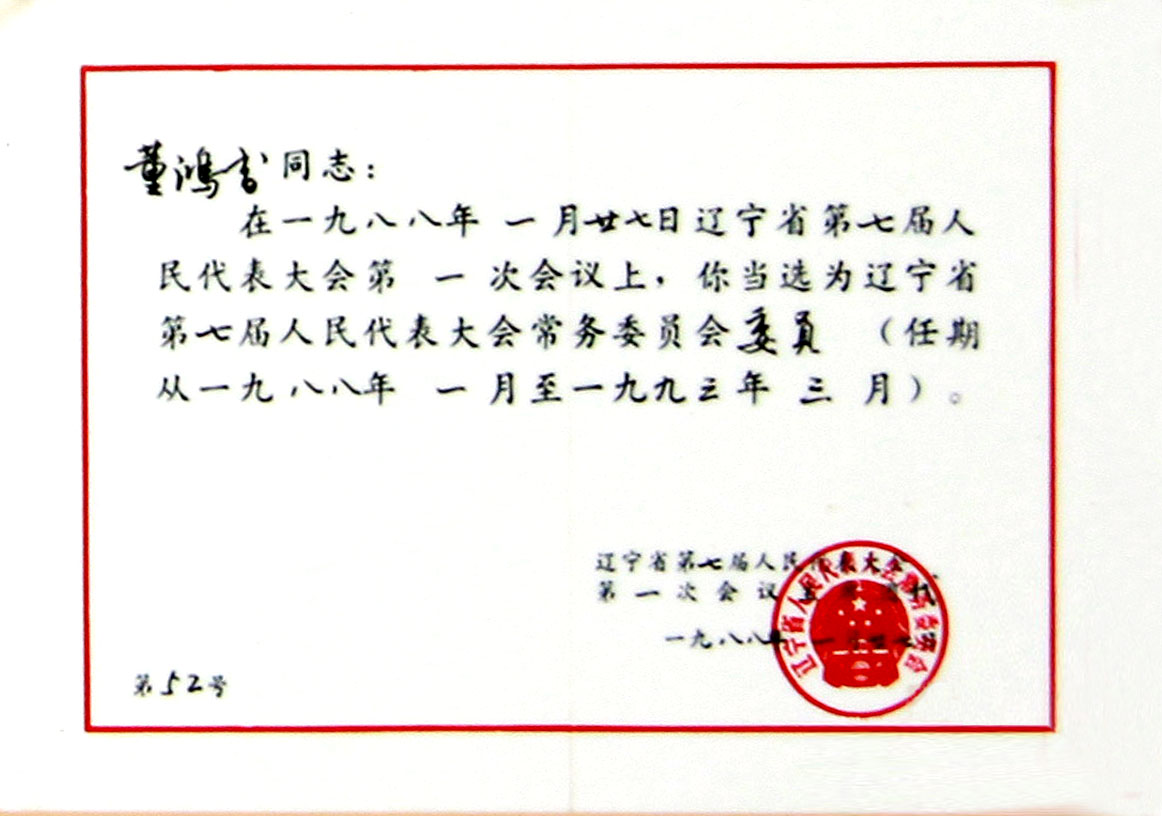 董鸿书同志：
在一九八八年一月廿七日辽宁省第七届人
民代表大会第一次会议上，你当选为辽宁省
第七届人民代表大会常务委员会委员（任期
从一九八八年一月至一九九三年三月）。
辽宁省第七届人民代表大会
第一次会议
一九八八年一月廿七
第52号
辽宁省人民代表大会常务委员会